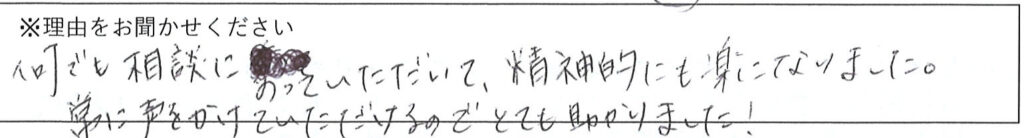 ※理由をお聞かせください
何でも相談にのっていただいて、精神的にも楽になりました。
常に声をかけていただけるのでとても助かりました!